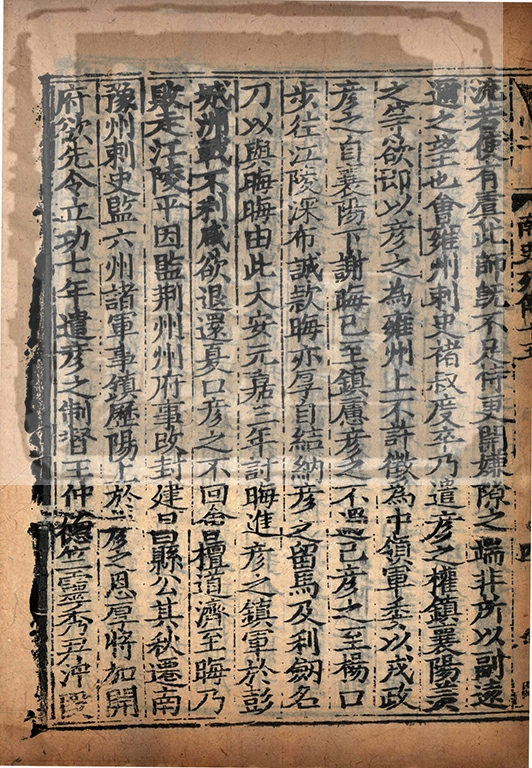 流若便有虞此師既不足恃更開嫌隙之端非所以副遠
邇之望也會雍州刺史褚叔度卒乃遣彥之權鎮襄陽羨
之等欲卽以彥之為雍州上不許徵為中領軍委以戎政
彥之自襄陽下謝晦已至鎮慮彥之不過己彥之至楊口
步往江陵深布誠款晦亦厚自結納彥之留馬及利劒名
刀以與晦晦由此大安元嘉三年討晦進彥之鎮軍於彭
城洲戰不利咸欲退還夏口彥之不回會檀道濟至晦乃
敗走江陵平因監荆州州府事改封建昌縣公其秋遷南
豫州刺史監六州諸軍事鎮歷陽上於彥之恩厚將加開
府欲先令立功七年遣彥之制督王仲德竺靈秀尹沖段